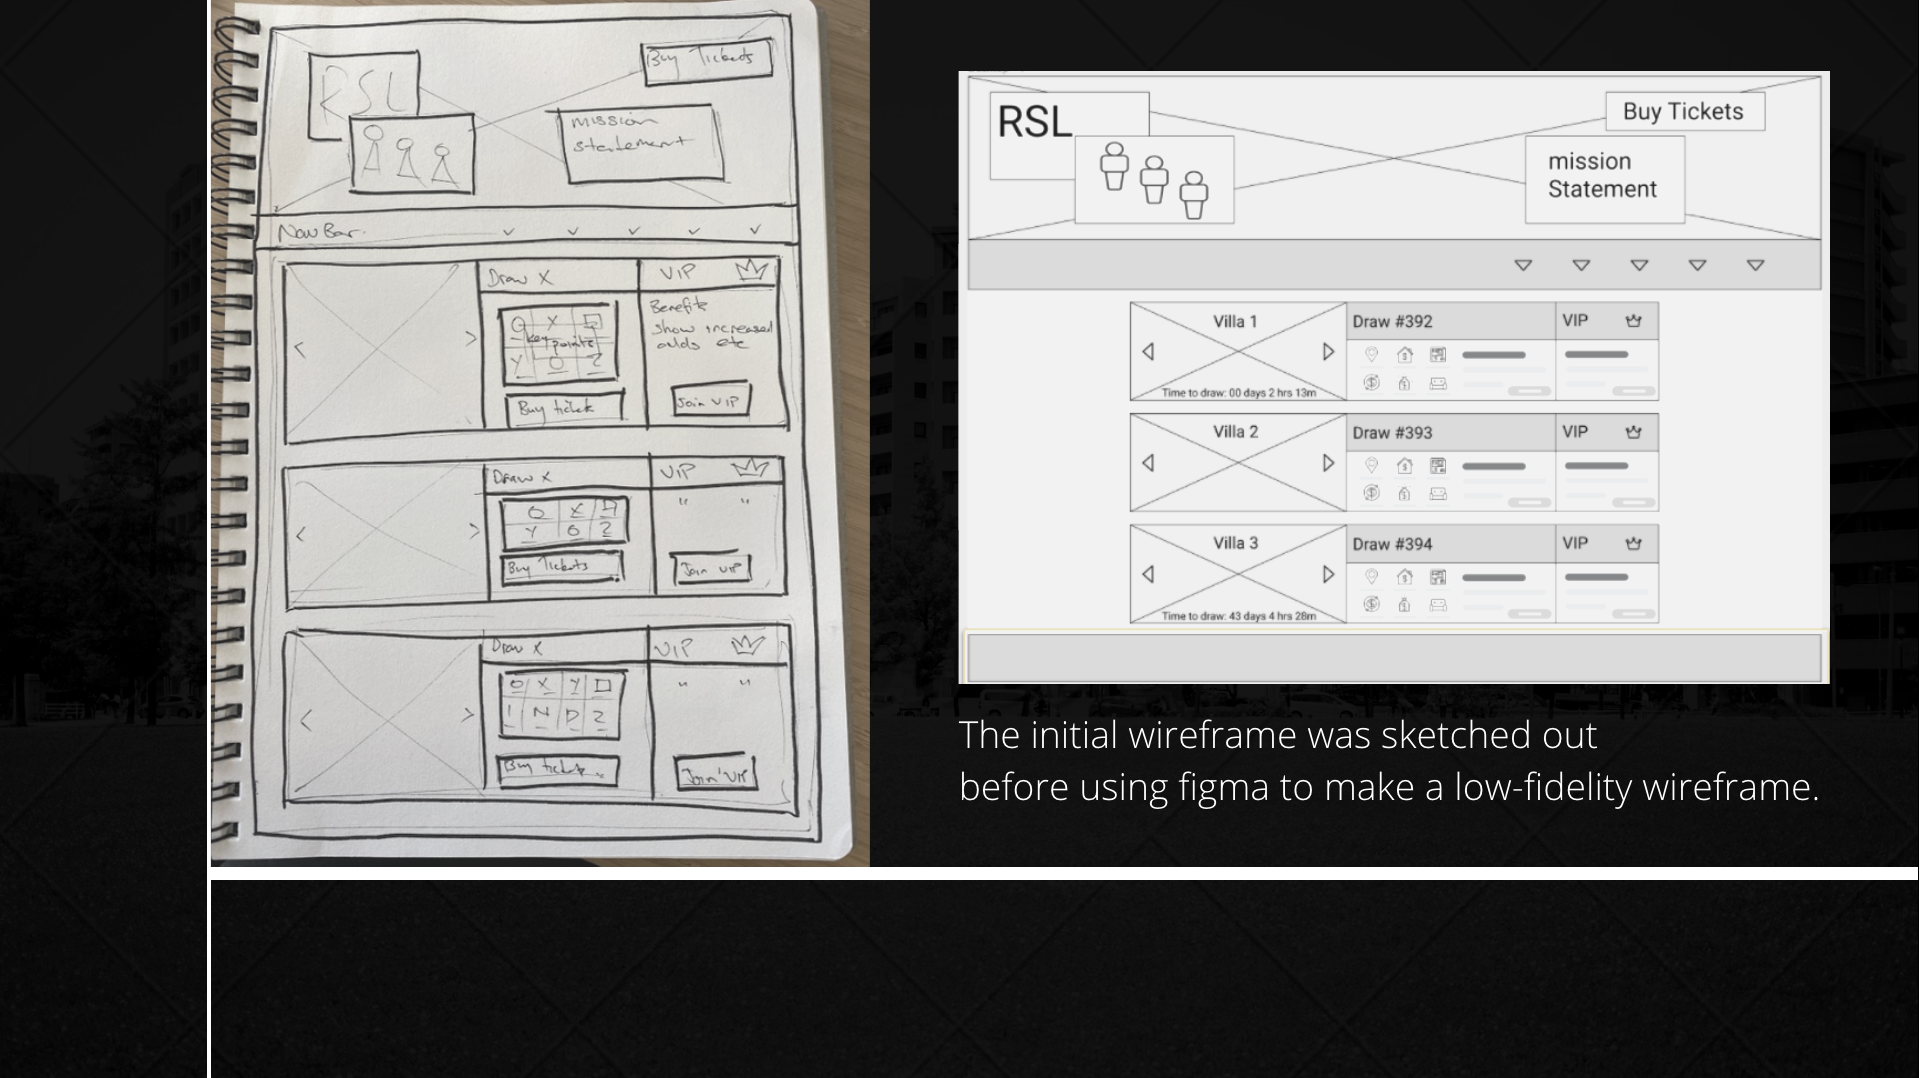 RSL
Buy Tickets
mission
statement
Nav Bar
Draw X
VIP
key points
Benefits
show increased
odds etc
Buy ticket
Join VIP
Draw X
VIP
" "
Buy Tickets
Join VIP
Draw X
VIP
" "
Buy tickets
Join VIP
RSL
Buy Tickets
mission
Statement
Villa 1
Draw #392
VIP
Time to draw: 00 days 2 hrs 13m
Villa 2
Draw #393
VIP
Villa 3
Draw #394
VIP
Time to draw: 43 days 4 hrs 28m
The initial wireframe was sketched out
before using figma to make a low-fidelity wireframe.